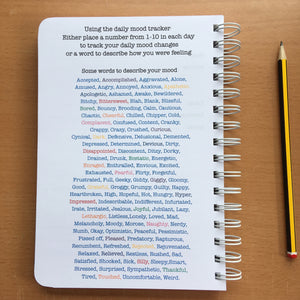 Using the daily mood tracker
Either place a number from 1-10 in each day
to track your daily mood changes
or a word to describe how you were feeling
Some words to describe your mood
Accepted, Accomplished, Aggravated, Alone,
Amused, Angry, Annoyed, Anxious,
Apologetic, Ashamed, Awake, Bewildered,
Bitchy, Bittersweet, Blah, Blank, Blissful,
Bored, Bouncy, Brooding, Calm, Cautious,
Chaotic, Cheerful, Chilled, Chipper, Cold,
Complacent, Confused, Content, Cranky,
Crappy, Crazy, Crushed, Curious,
Cynical, Dark, Defensive, Delusional, Demented,
Depressed, Determined, Devious, Dirty,
Disappointed, Discontent, Ditsy, Dorky,
Drained, Drunk, Ecstatic, Energetic,
Enraged, Enthralled, Envious, Excited,
Exhausted, Fearful, Flirty, Forgetful,
Frustrated, Full, Geeky, Giddy, Giggly, Gloomy,
Good, Grateful, Groggy, Grumpy, Guilty, Happy,
Heartbroken, High, Hopeful, Hot, Hungry, Hyper,
Impressed, Indescribable, Indifferent, Infuriated,
Irate, Irritated, Jealous, Joyful, Jubilant, Lazy,
Lethargic, Listless, Lonely, Loved, Mad,
Melancholy, Moody, Morose, Naughty, Nerdy,
Numb, Okay, Optimistic, Peaceful, Pessimistic,
Pissed off, Pleased, Predatory, Rapturous,
Recumbent, Refreshed, Rejected, Rejuvenated,
Relaxed, Relieved, Restless, Rushed, Sad,
Satisfied, Shocked, Sick, Silly, Sleepy, Smart,
Stressed, Surprised, Sympathetic, Thankful,
Tired, Touched, Uncomfortable, Weird.